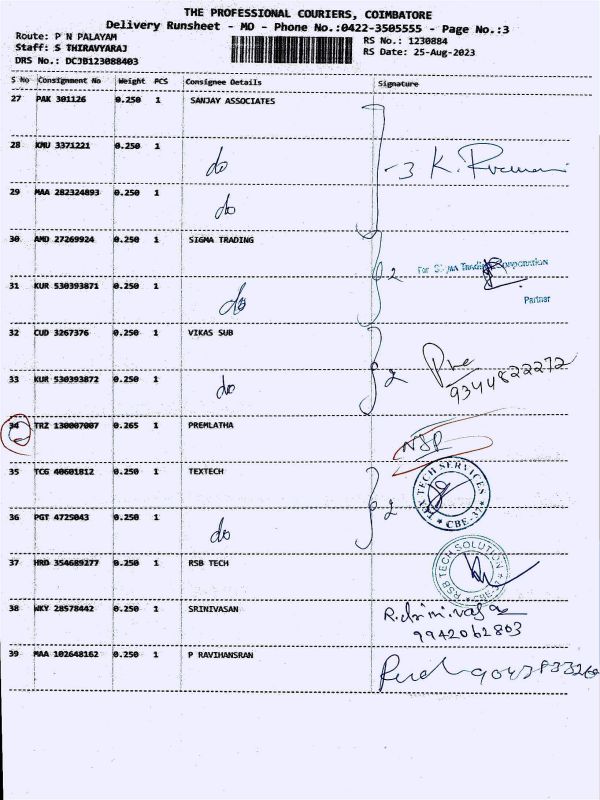 THE PROFESSIONAL COURIERS, COIMBATORE
Delivery Runsheet - MO - Phone No.:0422-3505555 - Page No.:3
Route: P N PALAYAM
RS No.: 1230884
Staff: S THIRAVYARAJ
RS Date: 25-Aug-2023
DRS No.: DCJB123088403
S No Consignment No Weight PCS Consignee Details Signature
27 PAK 301126 0.250 1 SANJAY ASSOCIATES
28 KMU 3371221 0.250 1 do 3 K.
29 MAA 282324893 0.250 1 do
30 AMD 27269924 0.250 1 SIGMA TRADING
2 For Sigma Trading Corporation
31 KUR 530393871 0.250 1 do
Partner
32 CUD 3267376 0.250 1 VIKAS SUB
33 KUR 530393872 0.250 1 do 2 9344822272
34 TRZ 130007007 0.265 1 PREMLATHA
35 TCG 40601812 0.250 1 TEXTECH
TEX TECH SERVICES * CBE-37 *
36 PGT 4725043 0.250 1 do 2
37 HRD 354689277 0.250 1 RSB TECH
RSB TECH SOLUTION
38 WKY 28578442 0.250 1 SRINIVASAN
9942062803
39 MAA 102648162 0.250 1 P RAVIHANSRAN